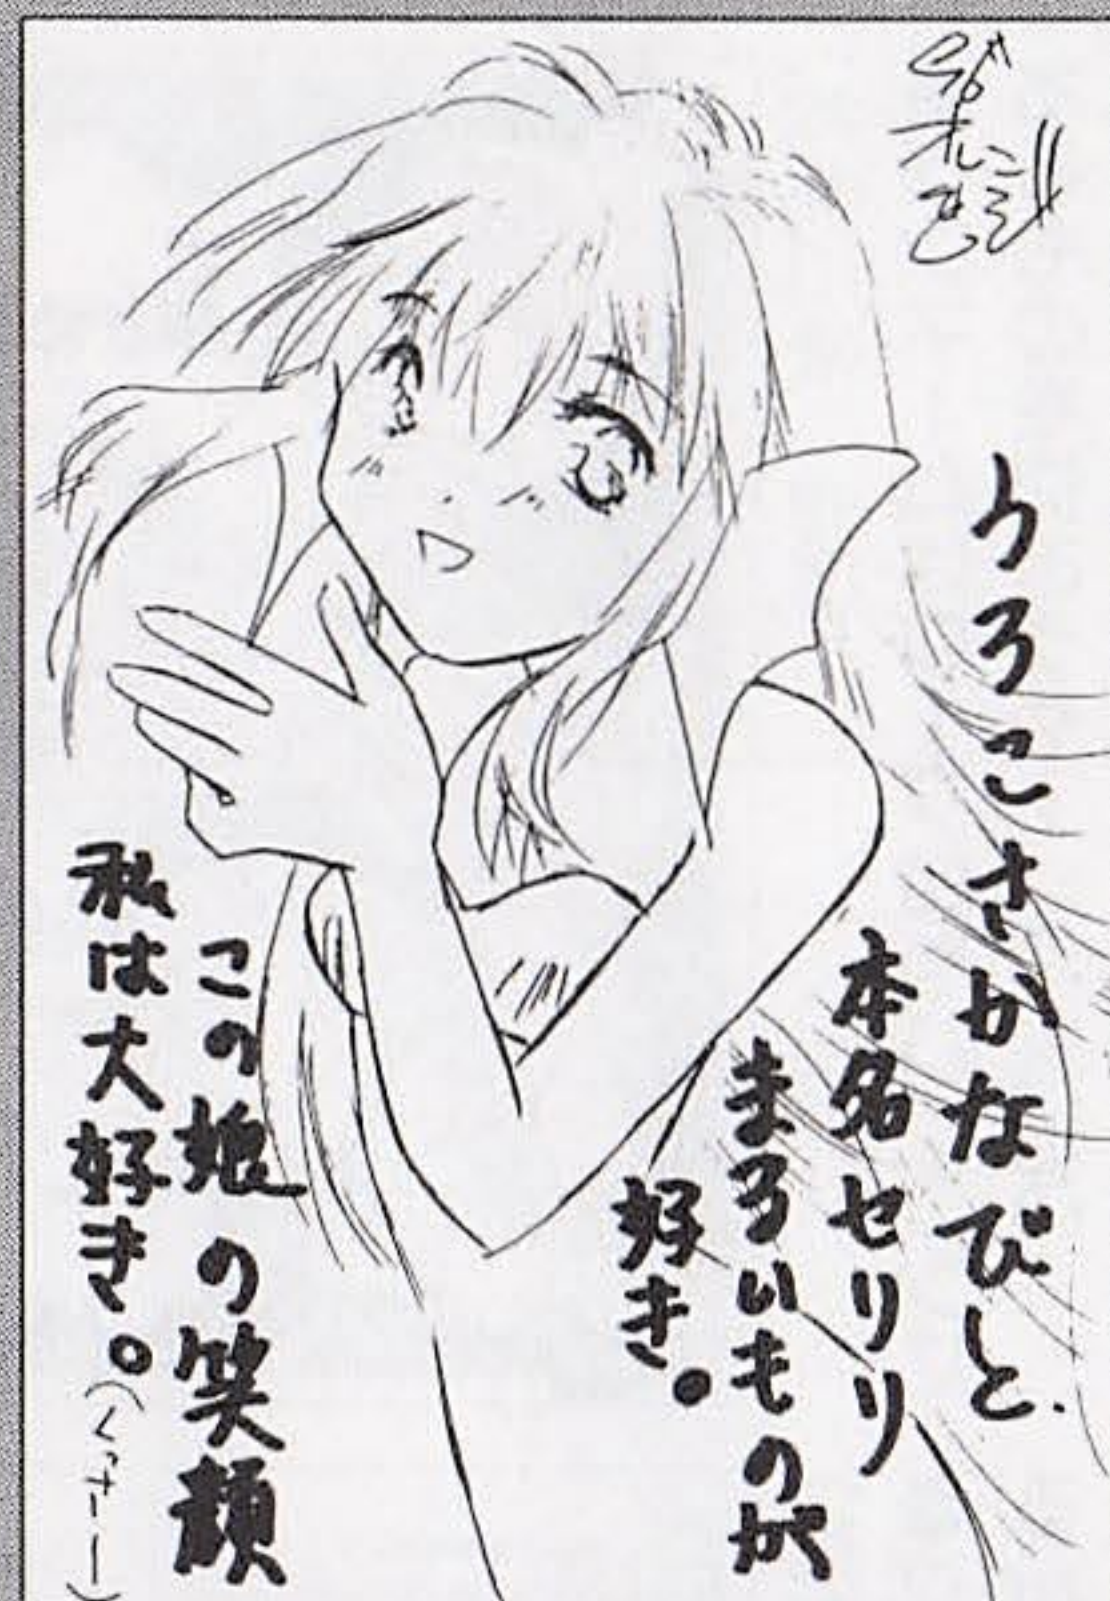 うろこさかなびと
本名セリリ
まろいものが
好き。
この娘の笑顔
私は大好き。
(くさーー)